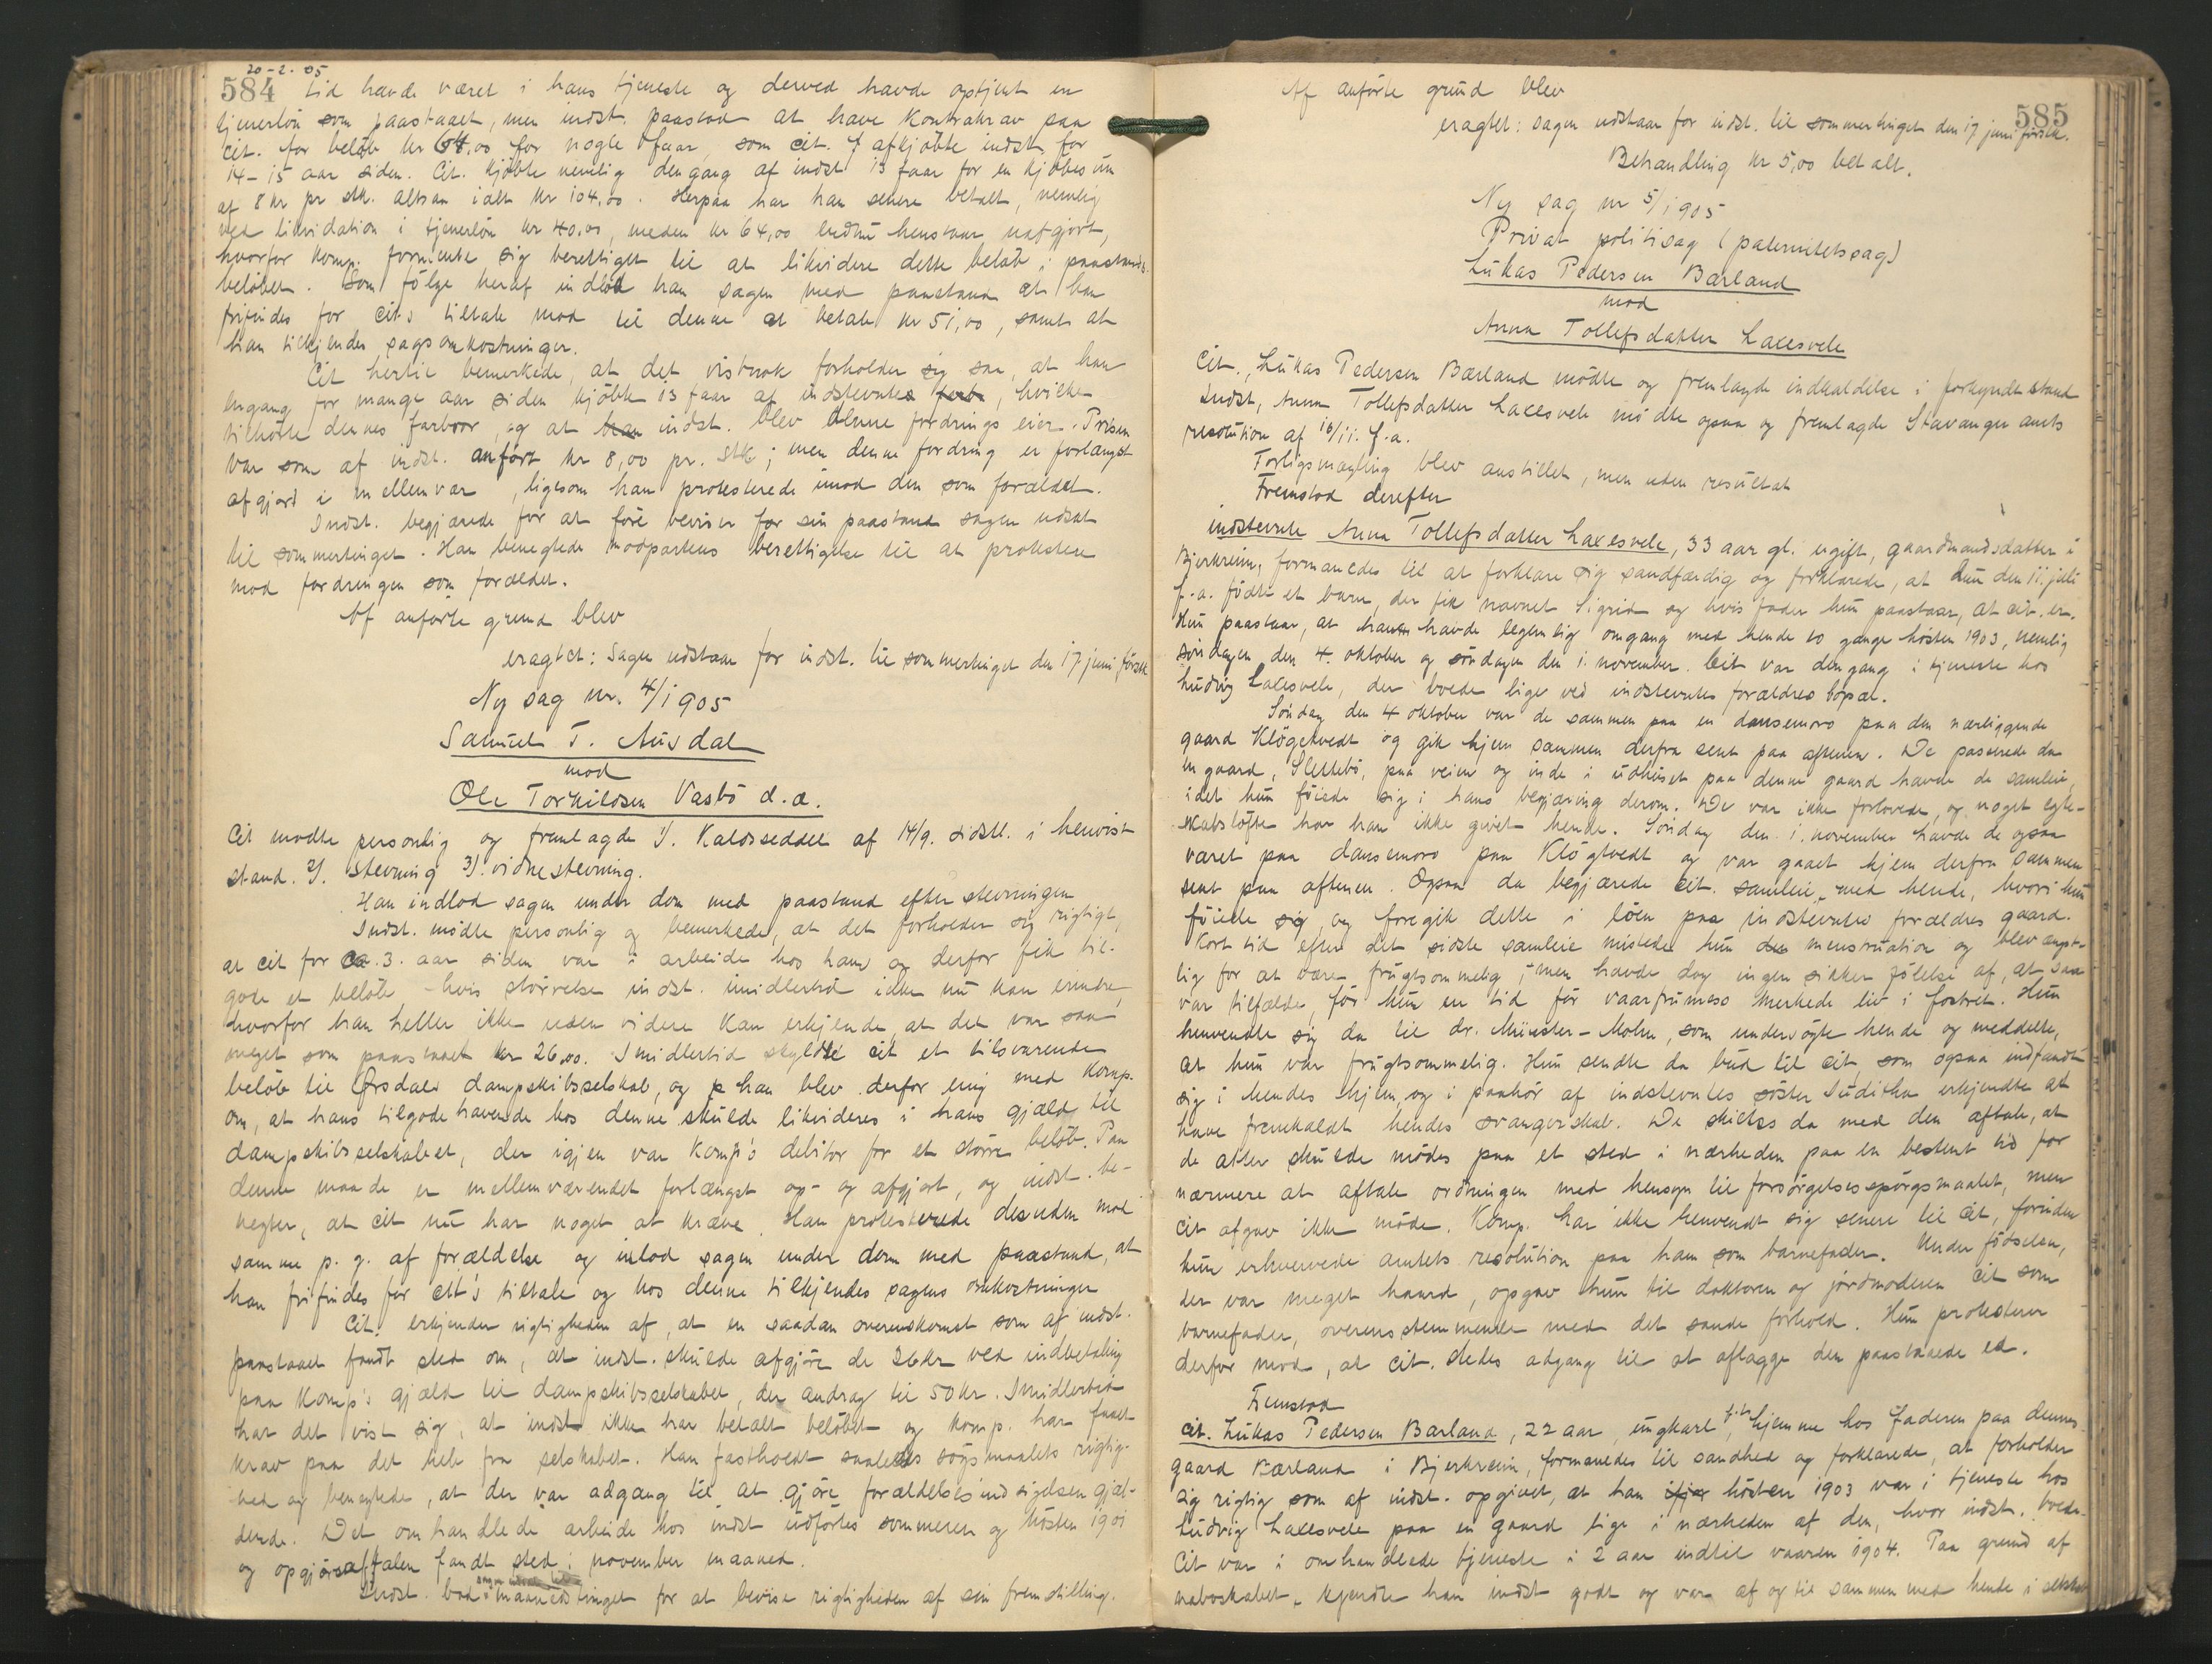 20-2-05
584
tid havde været i hans tjeneste og derved havde optjent en
tjenerløn som paastaaet, men indst. paastod at have Kontrakrav paa
cit. for beløb kr 64,00 for nogle faar, som cit. afkjøbte indst. for
14-15 aar siden. Cit. kjøbte nemlig dengang af indst 13 faar for en kjøbesum
af 8 kr pr stk. altsaa ialt kr 104,00. Herpaa har han senere betalt, nemlig
ved likvidation i tjenerløn kr 40,00, meden kr 64,00 endnu henstaar uafgjort,
hvorfor komp. formente sig berettiget til at likvidere dette beløb i paastands-
beløbet. Som følge heraf indlod han sagen med paastand at han
frifindes for cit's tiltale mod til denne at betale kr 51,00, samt at
han tilkjendes sagsomkostninger.
Cit hertil bemerkede, at det vistnok forholder sig saa, at han
engang for mange aar siden kjøbte 13 faar af indstevntes, hvilke
tilhørte dennes farbror, og at indst. blev denne fordrings eier. Prisen
var som af indst. anført kr 8,00 pr. stk; men denne fordring er forlængst
afgjord i mellemvær, ligesom han protesterede imod den som forældet.
Indst. begjærede for at føre beviser for sin paastand sagen udsat
til sommertinget. Han benegtede modpartens berettigelse til at protestere
mod fordringen som forældet.
Af anførte grund blev
eragtet: Sagen udstaar for indst. til sommertinget den 17 juni førstk.
Ny sag nr. 4/1905
Samuel T. Ausdal
mod
Ole Torkildsen Vasbø d.æ.
Cit mødte personlig og fremlagde 1/. Kaldsseddel af 14/9. sidstl. i henvist
stand. 2/. stevning 3/. vidnestevning.
Han indlod sagen under dom med paastand efter stevningen
Indst. mødte personlig og bemerkede, at det forholder sig rigtigt,
at cit for ca. 3. aar siden var i arbeide hos ham og derfor fik til-
gode et beløb, hvis størrelse indst. imidlertid ikke nu kan erindre,
hvorfor han heller ikke uden videre kan erkjende, at det var saa
meget som paastaaet kr 26,00. Imidlertid skyldte cit et tilsvarende
beløb til Ørsdals dampskibsselskab, og han blev derfor enig med komp.
om, at hans tilgodehavende hos denne skulde likvideres i hans gjæld til
dampskibsselskabet, der igjen var komp's debitor for et større beløb. Paa
denne maade er mellemværendet forlængst op- og afgjort, og indst. be-
negter, at cit nu har noget at kræve. Han protesterede desuden mod
samme p. g. af forældelse og inlod sagen under dom med paastand, at
han frifindes for cit's tiltale og hos denne tilkjendes sagens omkostninger
Cit. erkjender rigtigheden af, at en saadan overenskomst som af indst.
paastaaet fandt sted om, at indst. skulde afgjøre de 26 kr ved indbetaling
paa komp's gjæld til dampskibsselskabet, der androg til 50 kr. Imidlertid
har det vist sig, at indst ikke har betalt beløbet og komp. har faaet
krav paa det hele fra selskabet. Han fastholdt saaledes søgsmaalets rigtig-
hed og benegtede, at der var adgang til at gjøre forældelsesindsigelsen gjæl-
dende. Det omhandlede arbeide hos indst udførtes sommeren og høsten 1901
og opgjørsaftalen fandt sted i november maaned.
Indst. bad maanedstinget for at bevise rigtigheden af sin fremstilling.
585
Af anførte grund blev
eragtet: sagen udstaar for indst. til sommertinget den 17 juni førstk.
Behandling kr 5,00 betalt.
Ny sag nr 5/1905
Privat politisag (paternitetssag)
Lukas Pedersen Bærland
mod
Anna Tollefsdatter Laxesvele
Cit., Lukas Pedersen Bærland mødte og fremlagde indkaldelse i forkyndt stand
Indst, Anna Tollefsdatter Laxesvele mødte ogsaa og fremlagde Stavanger amts
resolution af 16/11. f.a.
Forligsmægling blev anstillet, men uden resultat
Fremstod derefter
indstevnte Anna Tollefsdatter Laxesvele, 33 aar gl. ugift, gaardmandsdatter i
Bjerkreim, formanedes til at forklare sig sandfærdig og forklarede, at hun den 11. juli
f.a. fødte et barn, der fik navnet Sigrid og hvis fader hun paastaar, at cit. er.
Hun paastaar, at han havde legemlig omgang med hende to gange høsten 1903, nemlig
søndagen den 4. oktober og søndagen den 1. november. Cit var dengang i tjeneste hos
Ludvig Laxesvele, der boede lige ved indstevntes forældres bopæl.
Søndag den 4 oktober var de sammen paa en dansemoro paa den nærliggende
gaard Kløgetvedt og gik hjem sammen derfra sent paa aftenen. De passerede da
en gaard, Slettebø, paa veien og inde i udhuset paa denne gaard havde de samleie,
idet hun føiede sig i hans begjæring derom. De var ikke forlovede, og noget egte-
skabsløfte har han ikke givet hende. Søndag den 1. november havde de ogsaa
været paa dansemoro paa Kløgtvedt og var gaaet hjem derfra sammen
sent paa aftenen. Ogsaa da begjærede cit. samleie med hende, hvori hun
føiede sig, og foregik dette i løen paa indstevntes forældres gaard.
Kort tid efter det sidste samleie mistede hun menstruation og blev ængst-
lig for at være frugtsommelig, men havde dog ingen sikker følelse af, at saa
var tilfælde, før hun en tid før vaarfrumess merkede liv i fostret. Hun
henvendte sig da til dr. Münster-Mohn, som undersøgte hende og meddelte,
at hun var frugtsommelig. Hun sendte da bud til cit, som ogsaa indfandt
sig i hendes hjem, og i paahør af indstevntes søster Juditha erkjendte at
have fremkaldt hendes svangerskab. De skiltes da med den aftale, at
de atter skulde mødes paa et sted i nærheden paa en bestemt tid for
nærmere at aftale ordningen med hensyn til forsørgelsesspørgsmaalet, men
cit afgav ikke møde. Komp. har ikke henvendt sig senere til cit, forinden
hun erhvervede amtets resolution paa ham som barnefader. Under fødselen,
der var meget haard, opgav hun til doktoren og jordmoderen cit som
barnefader, overensstemmende med det sande forhold. Hun protesterer
derfor mod, at cit. stedes adgang til at aflægge den paastaaede ed.
Fremstod
cit. Lukas Pedersen Bærland, 22 aar, ungkarl, hjemme hos faderen paa dennes
gaard Bærland i Bjerkreim, formanedes til sandhed og forklarede, at forholder
sig rigtig som af indst. opgivet, at han høsten 1903 var i tjeneste hos
Ludvig Laxesvele paa en gaard lige i nærheden af den, hvor indst. boede.
Cit var i omhandlede tjeneste i 2 aar indtil vaaren 1904. Paa grund af
naboskabet, kjendte han indst godt og var af og til sammen med hende i selskab